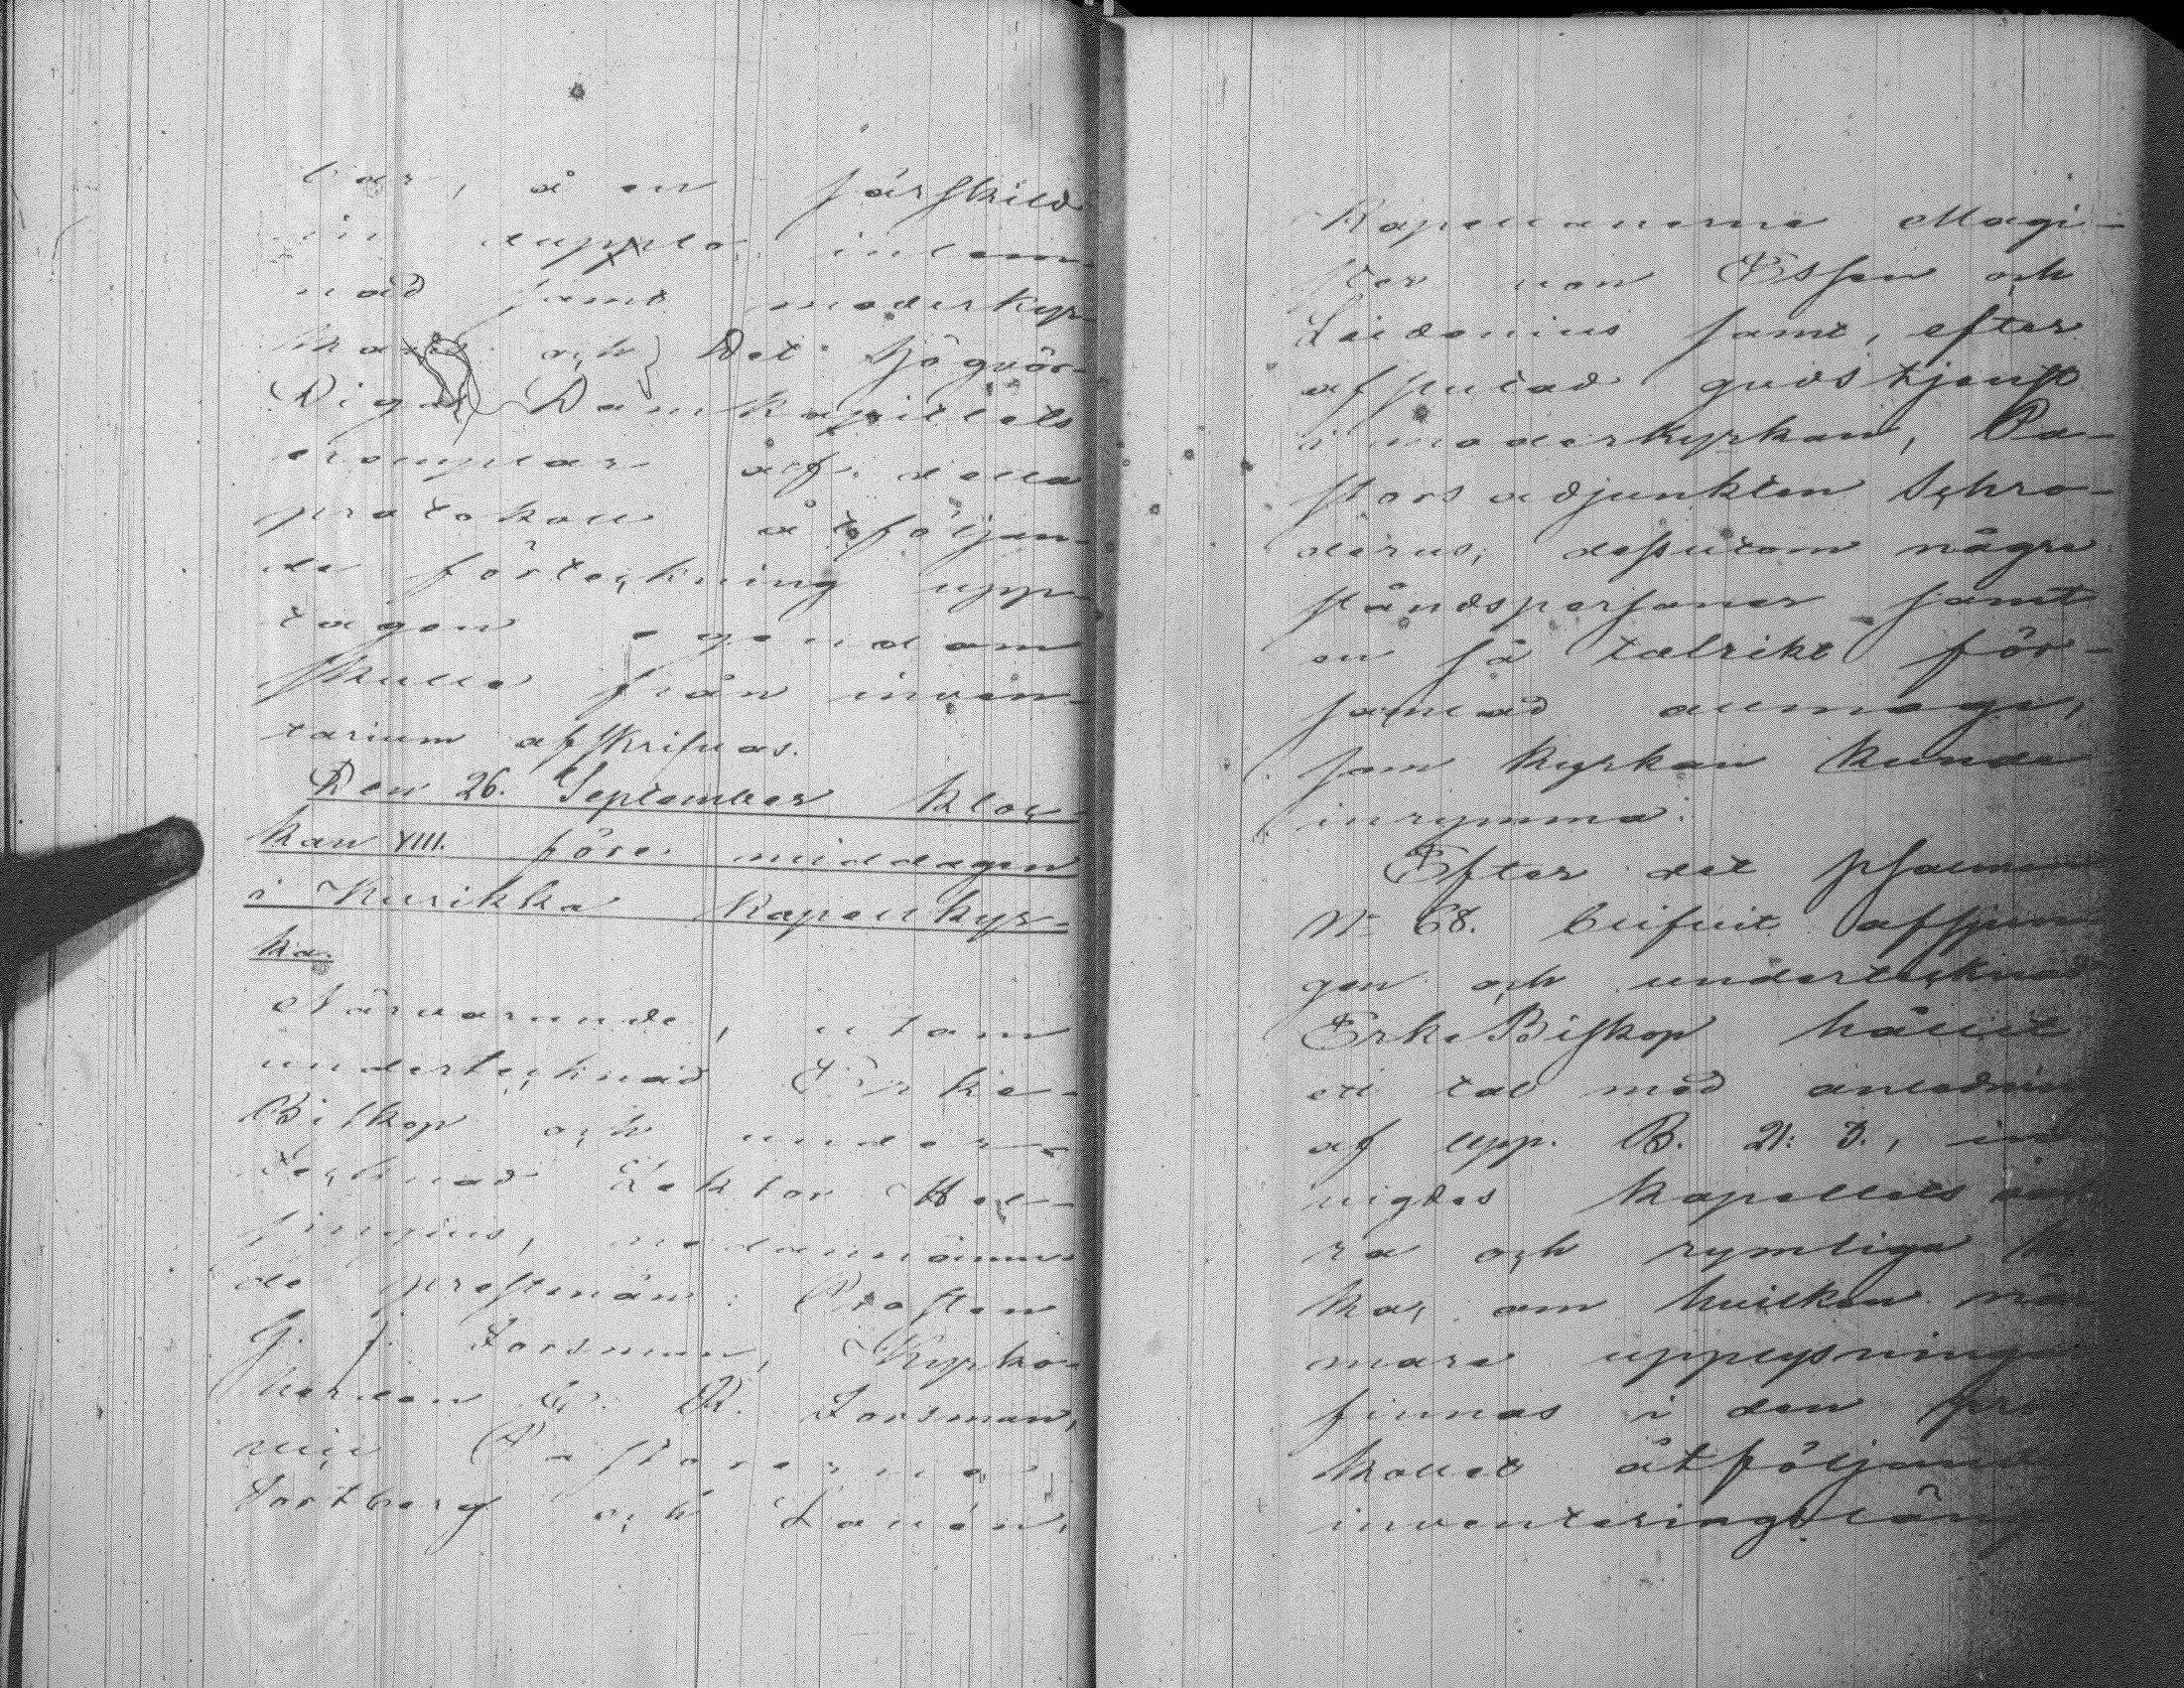 bar, å en särskild
in duplo inlem-
nad samt moderkyr-
kans och Det Högvör-
Diga Domkapitlets
exemplar af detta
protokoll åtföljan-
de förteckning upp-
tagen egendom
skulle från inven-
tarium afskrifvas.
Den 26. September kloc-
kan VIII. före middagen
i Kurikka Kapellkyr-
ka.
Närvarande, utom
undertecknad Erke-
Biskop och under-
tecknad Lektor Hel-
singius, nedannämn-
de prestmän: Prosten
G. J. Forsman, Kyrko-
herden Forsman,
Pastorerne
Fortberg och Lavén,
Kapellanerne Magi-
ster von Essen och
Lidenius samt, efter
afslutad gudstjenst
i moderkyrkan, Pa-
stors adjunkten Schro-
derus; dessutom några
ståndspersoner samt
en så talrikt för-
samlad allmoge,
som kyrkan kunde
inrymma.
Efter det psalmen
N:o 68. blifvit afsjun-
gen och undertecknad
ErkeBiskop hållit
ett tal med anledning
af Upp. B. 21: 3., in-
vigdes kapellets
ra och rymliga
ka, om hvilken när-
mare upplysningar
finnas i den pro-
kollet åtföljande
inventeringslängd